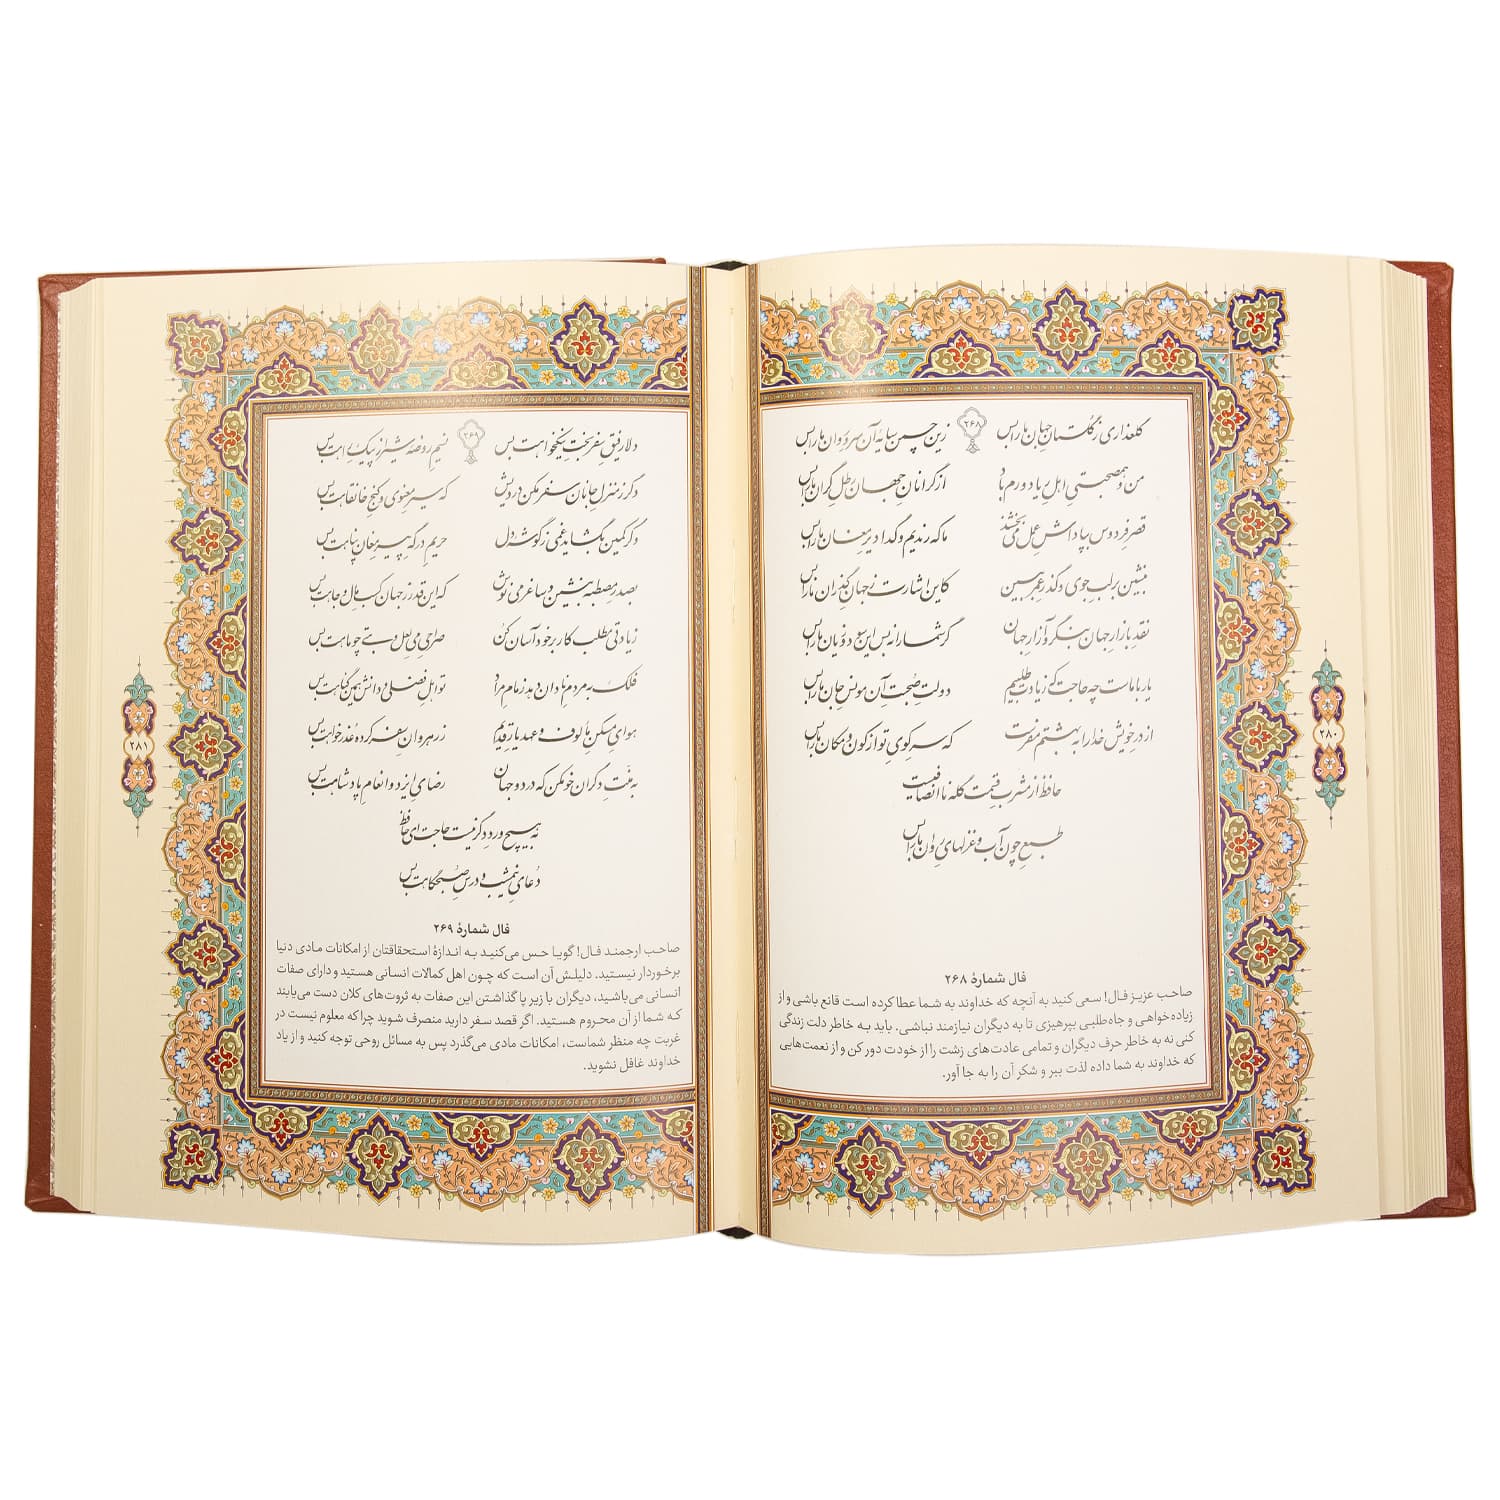 ۲۶۸
گلعذاری ز گلستان جهان ما را بس زین چمن سایهٔ آن سرو روان ما را بس
من و همصحبتی اهل ریا دورم باد از گرانان جهان رطل گران ما را بس
قصر فردوس بپاداش عمل می‌بخشند ما که رندیم و گدا دیر مغان ما را بس
بنشین بر لب جوی و گذر عمر ببین کاین اشارت ز جهان گذران ما را بس
نقد بازار جهان بنگر و آزار جهان گر شما را نه بس این سود و زیان ما را بس
یار با ماست چه حاجت که زیادت طلبیم دولت صحبت آن مونس جان ما را بس
از در خویش خدا را به بهشتم مفرست که سر کوی تو از کون و مکان ما را بس
حافظ از مشرب قسمت گله ناانصافیست
طبع چون آب و غزلهای روان ما را بس
فال شمارهٔ ۲۶۸
صاحب عزیز فال! سعی کنید به آنچه که خداوند به شما عطا کرده است قانع باشی و از
زیاده‌خواهی و جاه‌طلبی بپرهیزی تا به دیگران نیازمند نباشی. باید به خاطر دلت زندگی
کنی نه به خاطر حرف دیگران و تمامی عادت‌های زشت را از خودت دور کن و از نعمت‌هایی
که خداوند به شما داده لذت ببر و شکر آن را به جا آور.
۲۸۰
۲۶۹
دلا رفیق سفر بخت نیکخواهت بس نسیم روضه شیراز پیک راهت بس
دگر ز منزل جانان سفر مکن درویش که سیر معنوی و کنج خانقاهت بس
وگر کمین بگشاید غمی ز گوشهٔ دل حریم درگه پیر مغان پناهت بس
بصدر مصطبه بنشین و ساغر می نوش که این قدر ز جهان کسب مال و جاهت بس
زیادتی مطلب کار بر خود آسان کن صراحی می لعل و بتی چو ماهت بس
فلک به مردم نادان دهد زمام مراد تو اهل فضلی و دانش همین گناهت بس
هوای مسکن مألوف و عهد یار قدیم ز رهروان سفر کرده عذرخواهت بس
به منت دگران خو مکن که در دو جهان رضای ایزد و انعام پادشاهت بس
به هیچ ورد دگر نیست حاجت ای حافظ
دعای نیمشب و درس صبحگاهت بس
فال شمارهٔ ۲۶۹
صاحب ارجمند فال! گویا حس می‌کنید به اندازهٔ استحقاقتان از امکانات مادی دنیا
برخوردار نیستید. دلیلش آن است که چون اهل کمالات انسانی هستید و دارای صفات
انسانی می‌باشید، دیگران با زیر پا گذاشتن این صفات به ثروت‌های کلان دست می‌یابند
که شما از آن محروم هستید. اگر قصد سفر دارید منصرف شوید چرا که معلوم نیست در
غربت چه منظر شماست، امکانات مادی می‌گذرد پس به مسائل روحی توجه کنید و از یاد
خداوند غافل نشوید.
۲۸۱